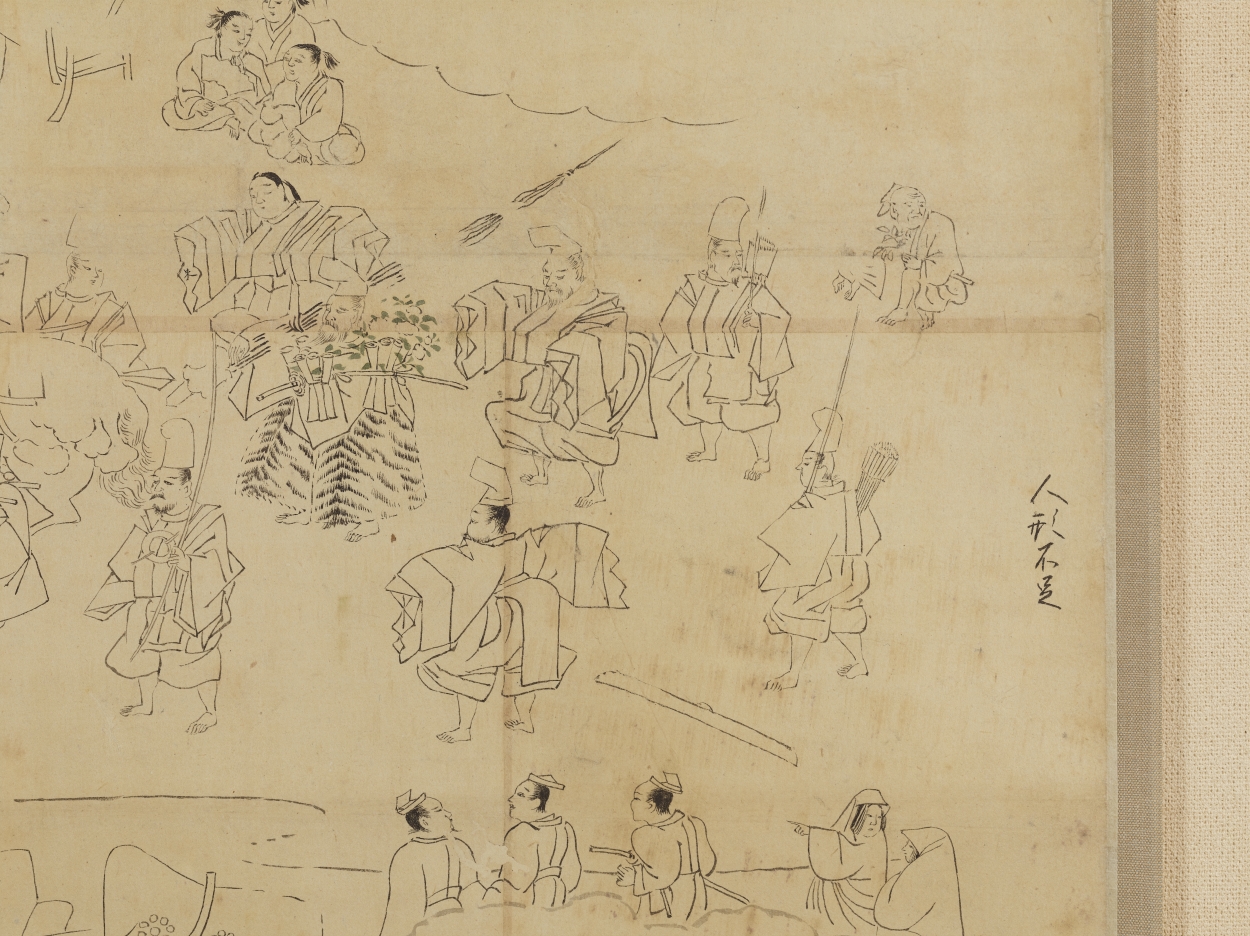 人形不足